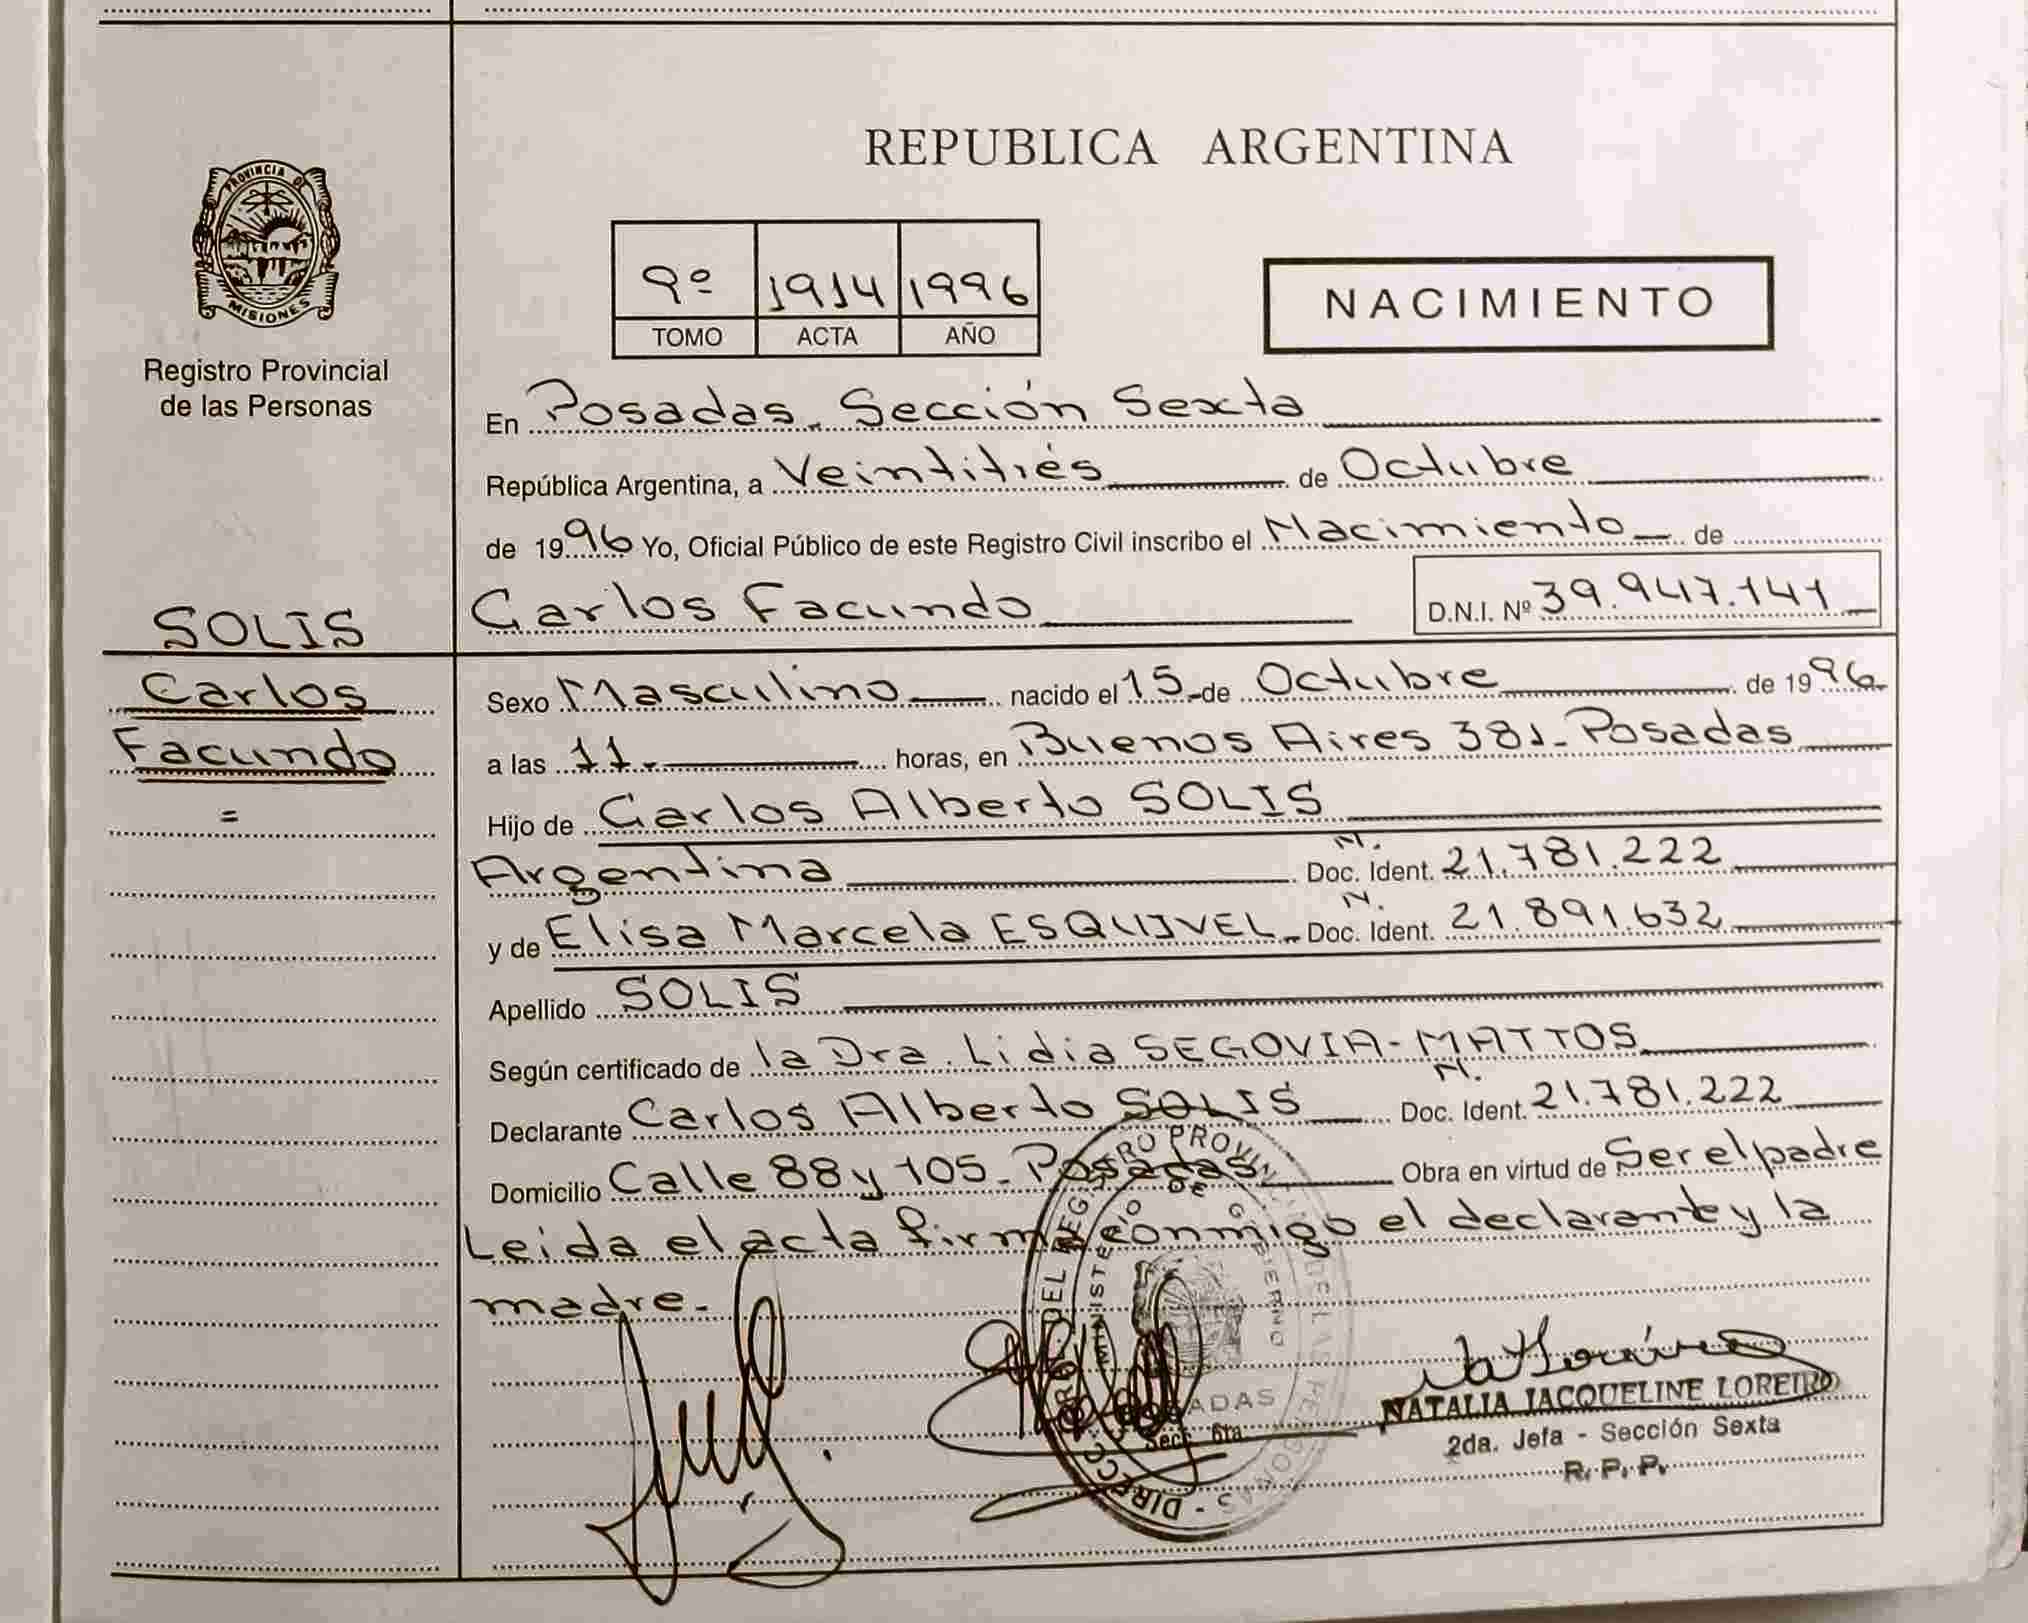 PROVINCIA DE
MISIONES
Registro Provincial
de las Personas
SOLIS
Carlos
Facundo
=
REPUBLICA ARGENTINA
9º 1914 1996
TOMO ACTA AÑO
NACIMIENTO
En Posadas. Sección Sexta
República Argentina, a Veintitrés de Octubre
de 1996 Yo, Oficial Público de este Registro Civil inscribo el Nacimiento de
Carlos Facundo D.N.I. Nº 39.947.141
Sexo Masculino nacido el 15 de Octubre de 1996
a las 11. horas, en Buenos Aires 381 - Posadas
Hijo de Carlos Alberto SOLIS
Argentina Doc. N. Ident. 21.781.222
y de Elisa Marcela ESQUIVEL Doc. N. Ident. 21.891.632
Apellido SOLIS
Según certificado de la Dra. Lidia SEGOVIA-MATTOS
Declarante Carlos Alberto SOLIS Doc. N. Ident. 21.781.222
Domicilio Calle 88 y 105 - Posadas Obra en virtud de Ser el padre
Leida el acta firma conmigo el declarante y la
madre.
MINISTERIO DE GOBIERNO
NATALIA JACQUELINE LOREIRO
2da. Jefa - Sección Sexta
R. P. P.
Secc. 6ta.